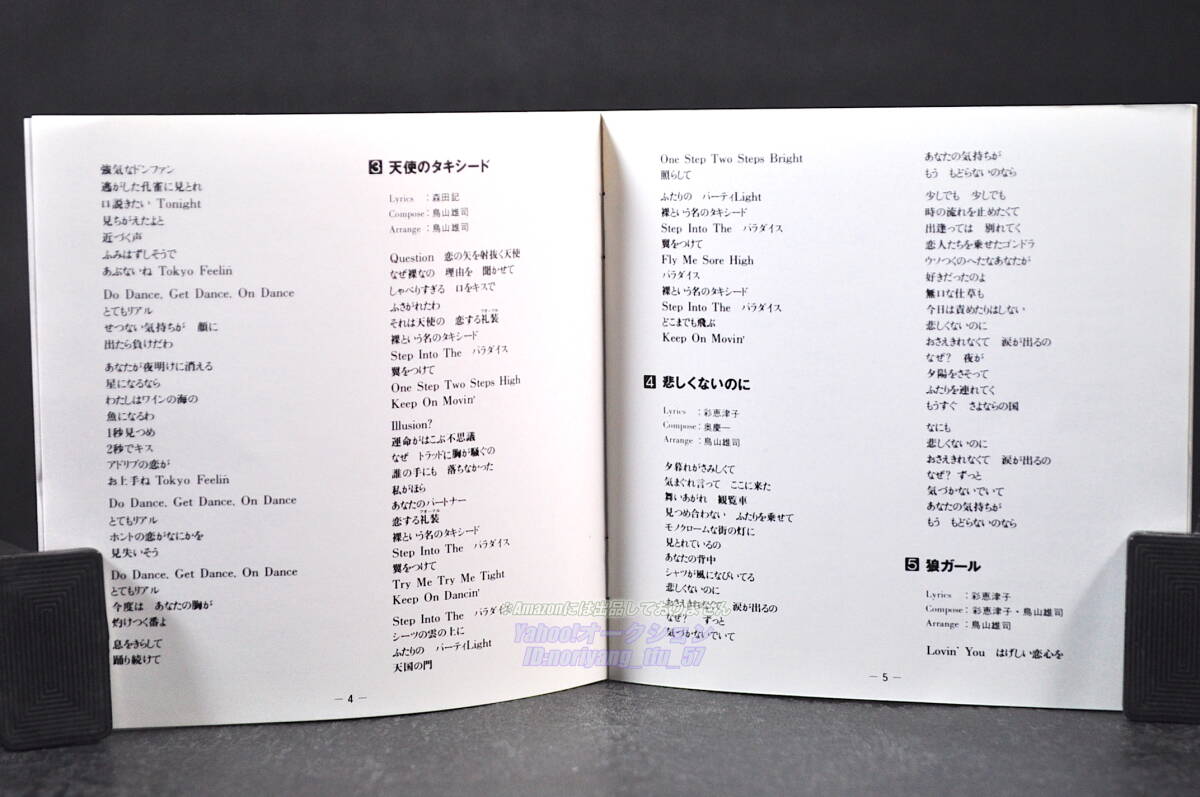 強気なドンファン
逃がした孔雀に見とれ
口説きたい Tonight
見ちがえたよと
近づく声
ふみはずしそうで
あぶないね Tokyo Feelin'
Do Dance, Get Dance, On Dance
とてもリアル
せつない気持ちが 顔に
出たら負けだわ
あなたが夜明けに消える
星になるなら
わたしはワインの海の
魚になるわ
1秒見つめ
2秒でキス
アドリブの恋が
お上手ね Tokyo Feelin'
Do Dance, Get Dance, On Dance
とてもリアル
ホントの恋がなにかを
見失いそう
Do Dance, Get Dance, On Dance
とてもリアル
今度は あなたの胸が
灼けつく番よ
息をきらして
踊り続けて
3 天使のタキシード
Lyrics :森田記
Compose:鳥山雄司
Arrange :鳥山雄司
Question 恋の矢を射抜く天使
なぜ裸なの 理由を 聞かせて
しゃべりすぎる 口をキスで
ふさがれたわ
それは天使の 恋する礼装
裸という名のタキシード
Step Into The パラダイス
翼をつけて
One Step Two Steps High
Keep On Movin'
Illusion?
運命がはこぶ不思議
なぜ トラッドに胸が騒ぐの
誰の手にも 落ちなかった
私がほら
あなたのパートナー
恋する礼装
裸という名のタキシード
Step Into The パラダイス
翼をつけて
Try Me Try Me Tight
Keep On Dancin'
Step Into The パラダイス
シーツの雲の上に
ふたりの パーティLight
天国の門
— 4 —
One Step Two Steps Bright
照らして
ふたりの パーティLight
裸という名のタキシード
Step Into The パラダイス
翼をつけて
Fly Me Sore High
パラダイス
裸という名のタキシード
Step Into The パラダイス
どこまでも飛ぶ
Keep On Movin'
4 悲しくないのに
Lyrics :彩恵津子
Compose:奥慶一
Arrange :鳥山雄司
夕暮れがさみしくて
気まぐれ言って ここに来た
舞いあがれ 観覧車
見つめ合わない ふたりを乗せて
モノクロームな街の灯に
見とれているの
あなたの背中
シャツが風になびいてる
悲しくないのに
おさえきれなくて 涙が出るの
なぜ? ずっと
気づかないでいて
あなたの気持ちが
もう もどらないのなら
少しでも 少しでも
時の流れを止めたくて
出逢っては 別れてく
恋人たちを乗せたゴンドラ
ウソつくのへたなあなたが
好きだったのよ
無口な仕草も
今日は責めたりはしない
悲しくないのに
おさえきれなくて 涙が出るの
なぜ? 夜が
夕陽をさそって
ふたりを連れてく
もうすぐ さよならの国
なにも
悲しくないのに
おさえきれなくて 涙が出るの
なぜ? ずっと
気づかないでいて
あなたの気持ちが
もう もどらないのなら
5 狼ガール
Lyrics :彩恵津子
Compose:彩恵津子・鳥山雄司
Arrange :鳥山雄司
Lovin' You はげしい恋心を
— 5 —
※Amazonには出品しておりません
Yahoo!オークション
ID:noriyang_tfu_57